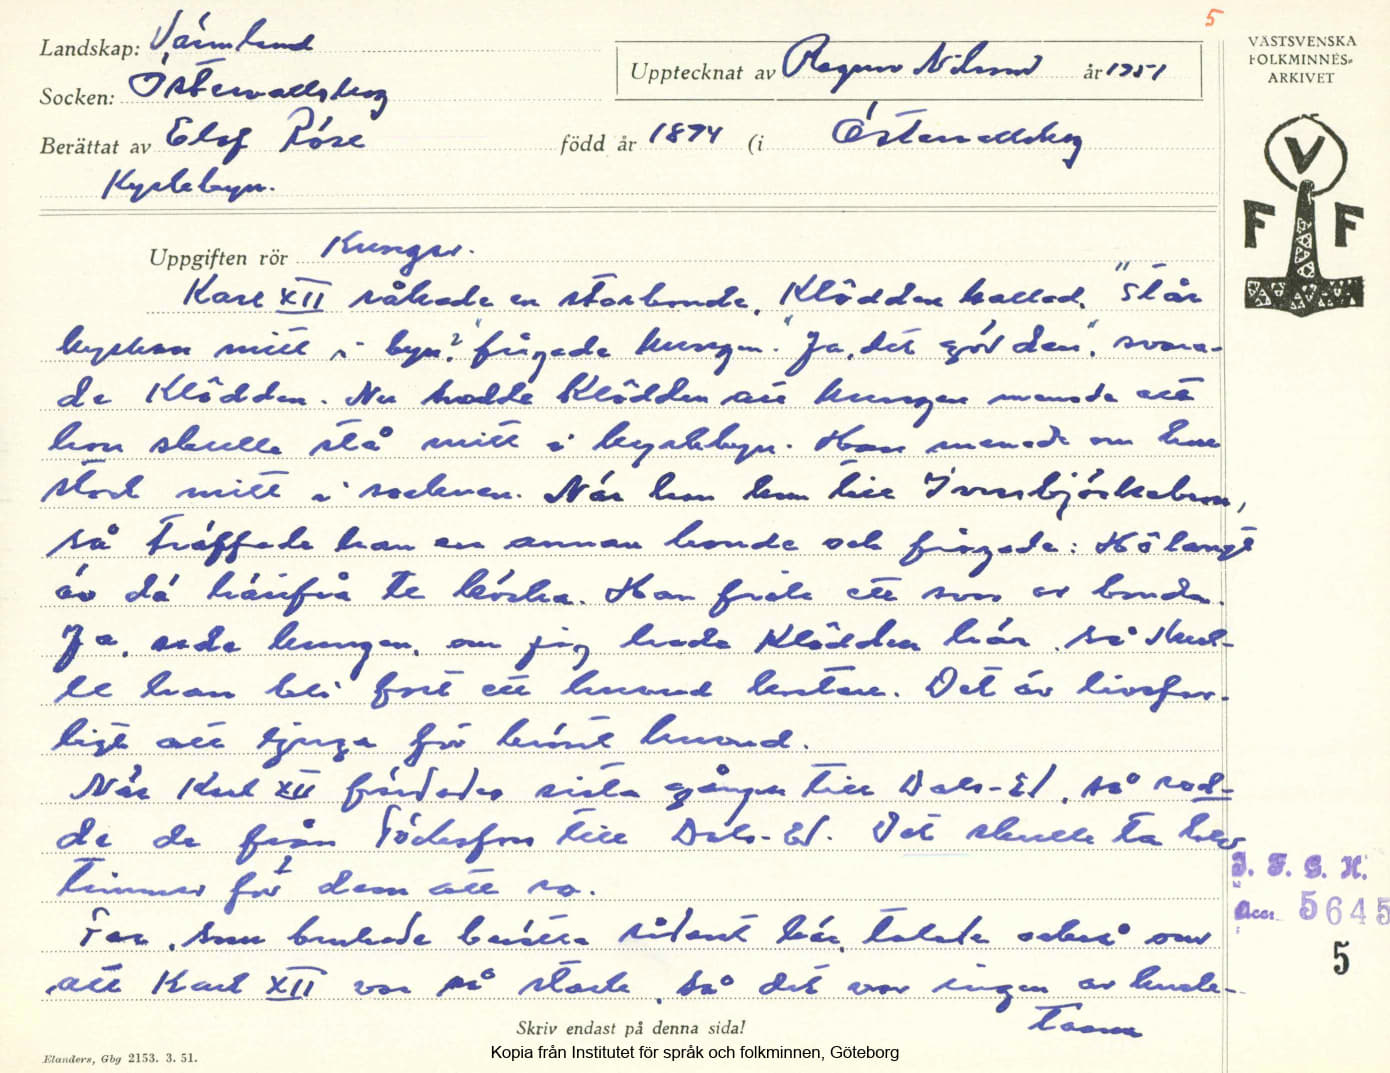 5
Landskap: Värmland
Socken: Östervallskog
Berättat av Elof Röse
Kyrkebyn.
Upptecknat av Ragnar Nilsson år 1951
född år 1874 (i Östervallskog
VÄSTSVENSKA
FOLKMINNES-
ARKIVET
V
F F
Uppgiften rör Kungar.
Karl XII råkade en storbonde, Klôdden kallad. "Står
kyrkan mitt i byn?" frågade kungen. "Ja, det gör den", svara-
de Klôdden. Nu trodde Klôdden att kungen menade att
hon skulle stå mitt i kyrkbyn. Han menade om hon
stod mitt i socknen. När han kom till
så träffade han en annan bonde och frågade: Hô långt
äv dä härifrå te körka. Han fick ett svar av bonden.
Ja, sade kungen, om jag hade Klôdden här, så skul-
le han bli fort ett huvud kortare. Det är livsfar-
ligt att ljuga för krönt huvud.
När Karl XII färdades sista gången till Dals-Ed, så rod-
de de från Töcksfors till Dals-Ed. Det skulle ta tolv
timmar för dem att ro.
Far, som brukade berätta sådant här, talade också om
att Karl XII var så stark, så det var ingen av knek-
tarna
Skriv endast på denna sida!
I. F. G. H.
Acc. 5645
5
Elanders, Gbg 2153. 3. 51.
Kopia från Institutet för språk och folkminnen, Göteborg